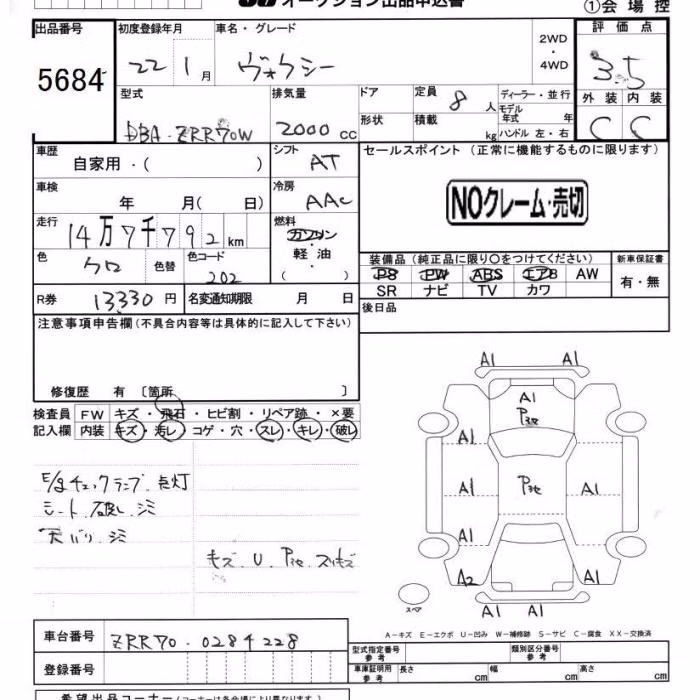 オークション出品申込書 ①会場控
出品番号 初度登録年月 車名・グレード 2WD・4WD 評価点
5684 22 1月 ヴォクシー 3.5
型式 排気量 ドア 定員 8人 ディーラー・並行 外装 内装
モデル年式 年
DBA-ZRR70W 2000cc 形状 積載 kg ハンドル 左・右 C C
車歴 自家用・( ) シフト AT セールスポイント(正常に機能するものに限ります)
車検 年 月( 日) 冷房 AAC NOクレーム・売切
走行 14万7千792km 燃料 ガソリン・軽油・( )
色 クロ 色替 色コード 202 装備品(純正品に限り○をつけてください) 新車保証書
PS PW ABS エアB AW 有・無
R券 13330円 名変通知期限 月 日 SR ナビ TV カワ
注意事項申告欄(不具合内容等は具体的に記入して下さい) 後日品
修復歴 有 [箇所 ]
検査員 FW キズ・飛石・ヒビ割・リペア跡・×要
記入欄 内装 キズ・汚レ・コゲ・穴・スレ・キレ・破レ
E/gチェックランプ点灯
シート破レ.シミ
天バリ.シミ
キズ.U.
A1 A1
A1
A1
A1 A1
A1
A2 A1
A1 A1
スペア
A-キズ E-エクボ U-凹み W-補修跡 S-サビ C-腐食 XX-交換済
車台番号 ZRR70-0284228 型式指定番号 参考 類別区分番号 参考
登録番号 車庫証明用 参考 長さ cm 幅 cm 高さ cm
希望出品コーナー(コーナーは各会場により異なります。)